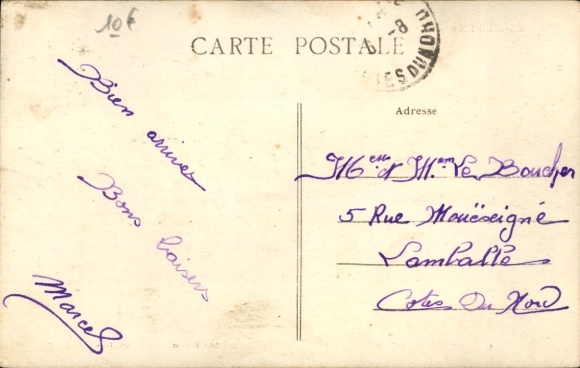 10€
CARTE POSTALE
-8
DU NORD
Adresse
Bien arrivés
Bons baisers
Marcel
Mr et Mme Le Boucher
5 Rue Mouëxigné
Lamballe
Cotes Du Nord